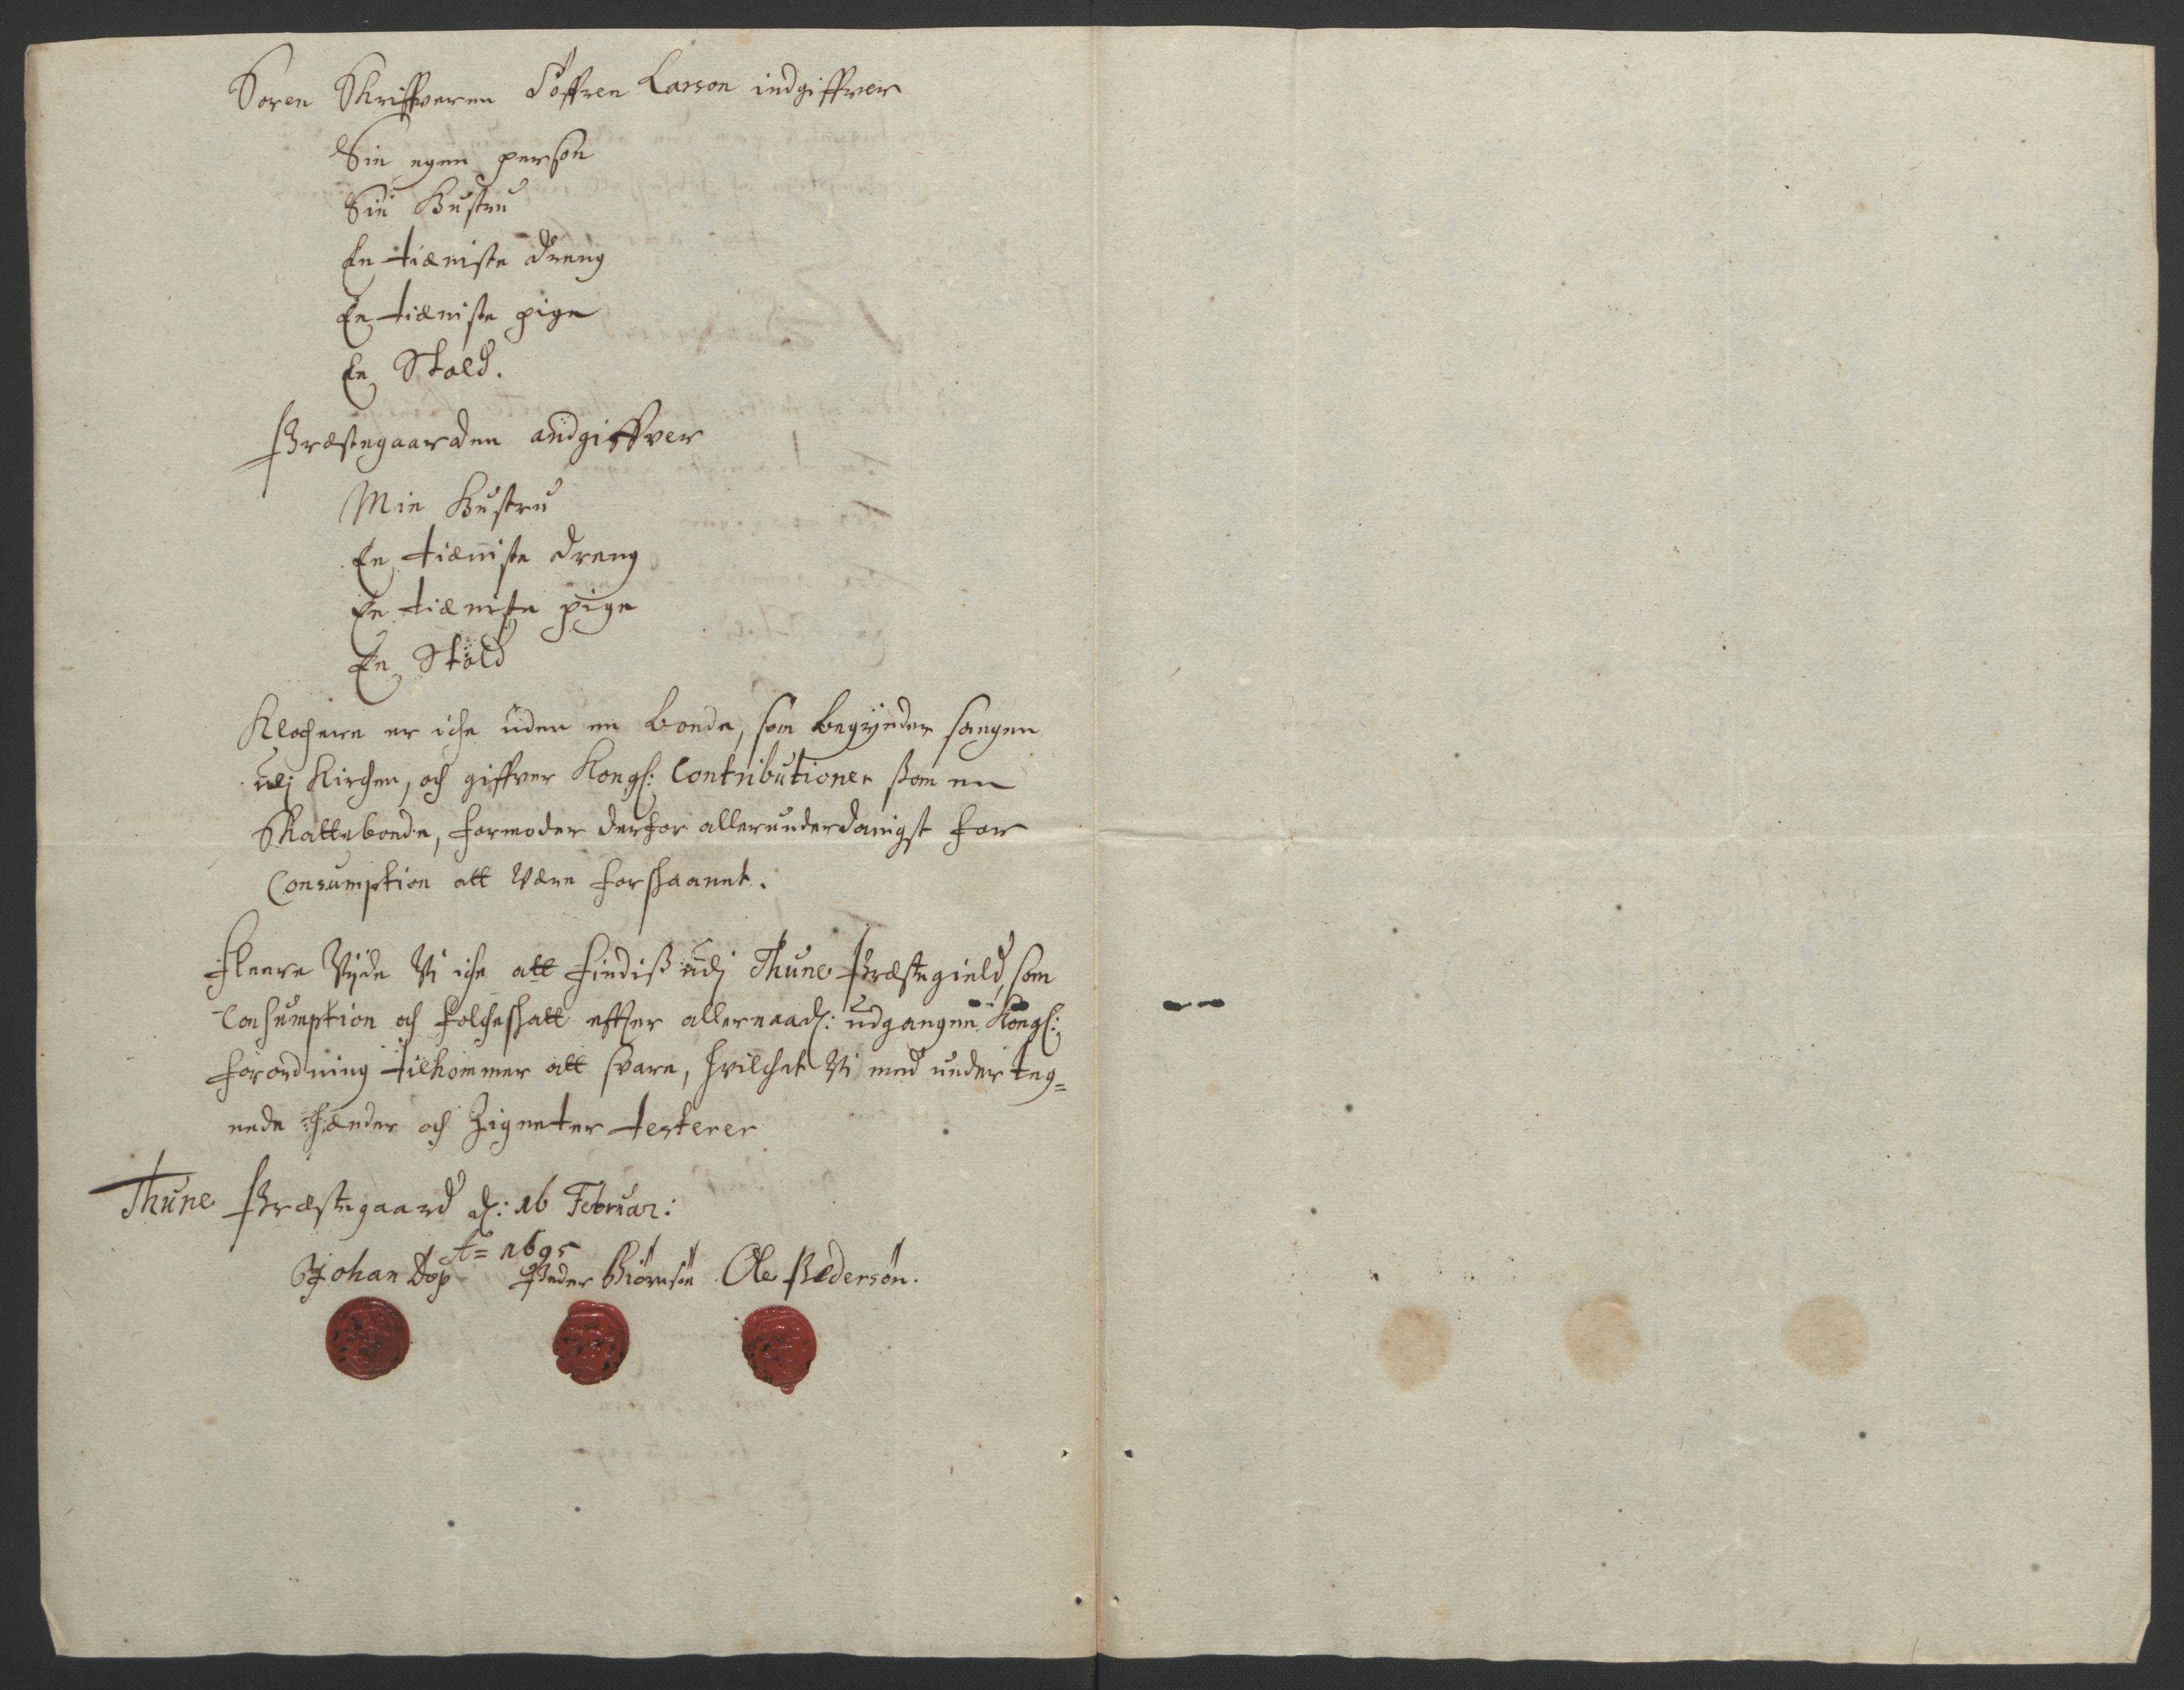 Soren Skriffveren Söffren Larson indgiffver
Sin egen person
Sin Hustru
En tiæniste dreng
En tiæniste pige
En Stald.
Præstegaarden andgiffver
Min Hustru
En tiæniste dreng
En tiæniste pige
En Stald
Klochere er iche uden en bonde, som begynder sangen
udj Kirchen, och giffver Kongl: Contributioner som en
Skattebonde, formoder derfor allerunderdanigst for
Consumption att Være forskaanet.
Fleere Vyde Vi iche att findiss udj Thune Præstegield, som
Consumption och folcheskatt efter allernaad: udgangen Kongl:
forordning tilkommer att svare, hvilchet Vi med underteg=
nede hænder och Zigneter testerer
Thune Præstegaard d: 16 Februar:
A= 1695
Johan Dop Peder Biörnsön Ole Pedersön.